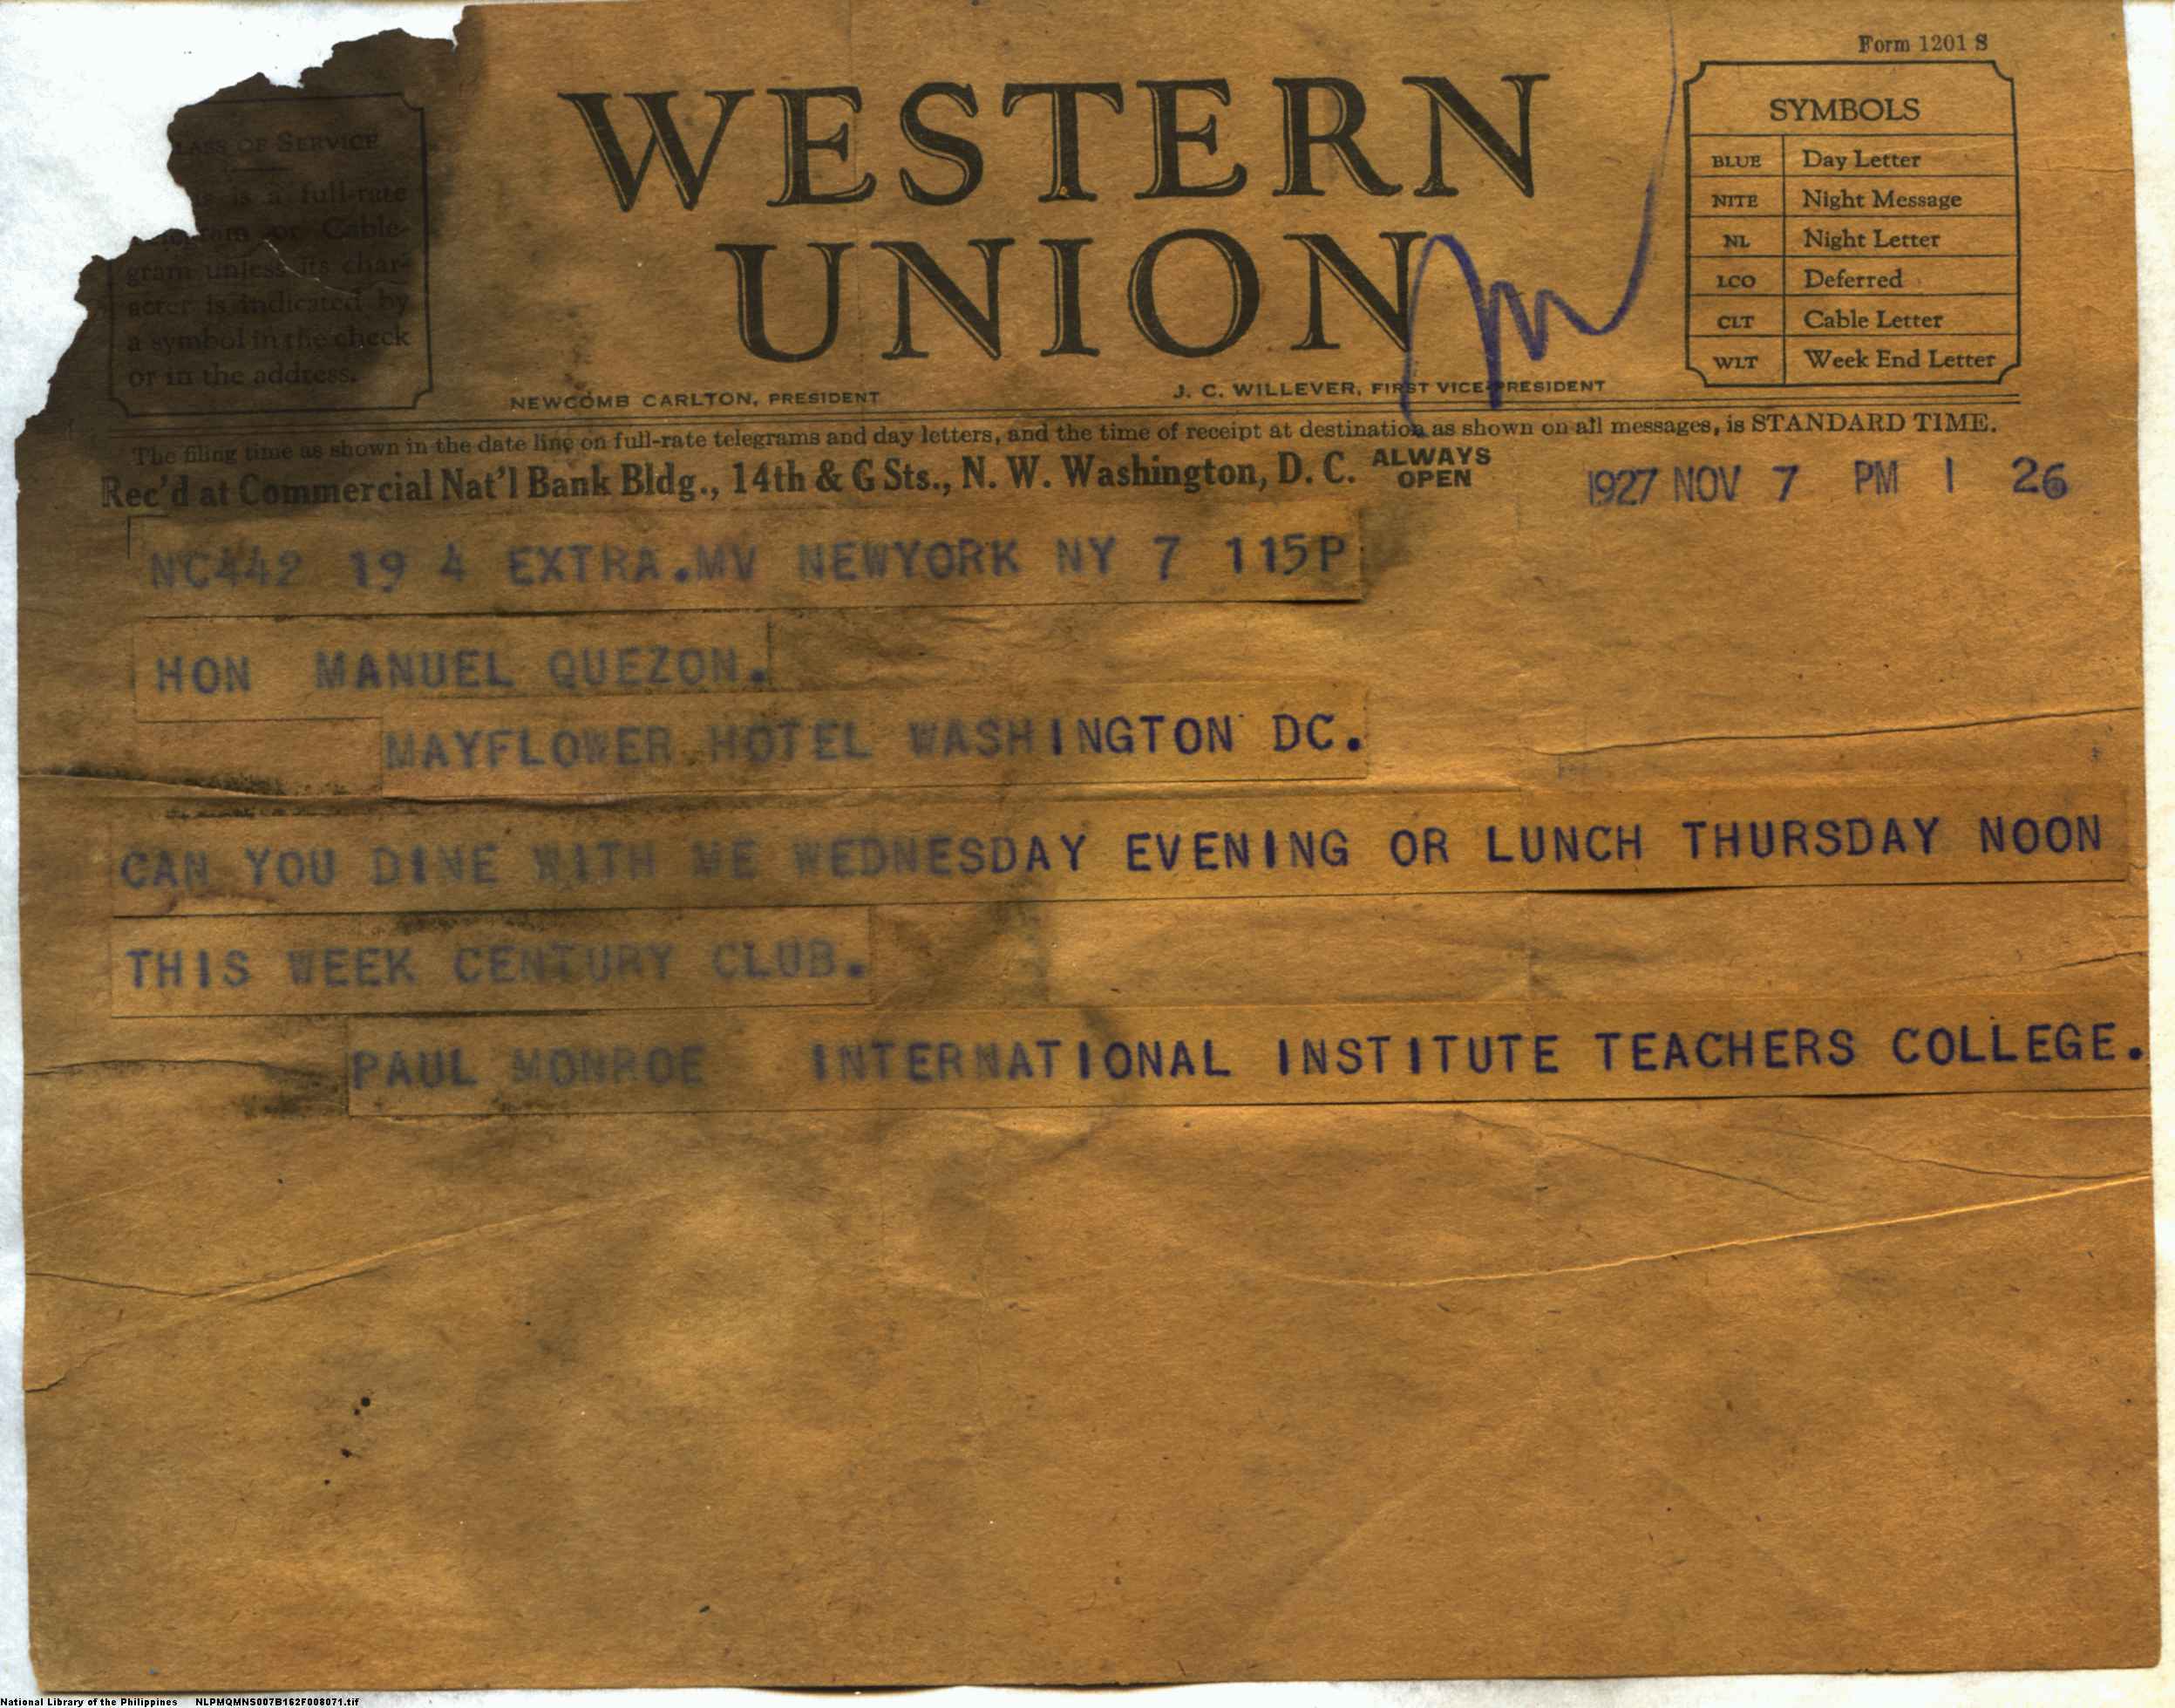 Form 1201 S
CLASS OF SERVICE
is a full-rate
Telegram or Cable-
gram unless its char-
acter is indicated by
a symbol in the check
or in the address.
WESTERN
UNION
NEWCOMB CARLTON, PRESIDENT
J. C. WILLEVER, FIRST VICE-PRESIDENT
SYMBOLS
BLUE Day Letter
NITE Night Message
NL Night Letter
LCO Deferred
CLT Cable Letter
WLT Week End Letter
The filing time as shown in the date line on full-rate telegrams and day letters, and the time of receipt at destination as shown on all messages, is STANDARD TIME.
Rec'd at Commercial Nat'l Bank Bldg., 14th & G Sts., N. W. Washington, D. C. ALWAYS OPEN
1927 NOV 7 PM 1 26
NC442 19 4 EXTRA.MV NEWYORK NY 7 115P
HON MANUEL QUEZON.
MAYFLOWER HOTEL WASHINGTON DC.
CAN YOU DINE WITH ME WEDNESDAY EVENING OR LUNCH THURSDAY NOON
THIS WEEK CENTURY CLUB.
PAUL MONROE INTERNATIONAL INSTITUTE TEACHERS COLLEGE.
National Library of the Philippines NLPMQMNS007B162F008071.tif